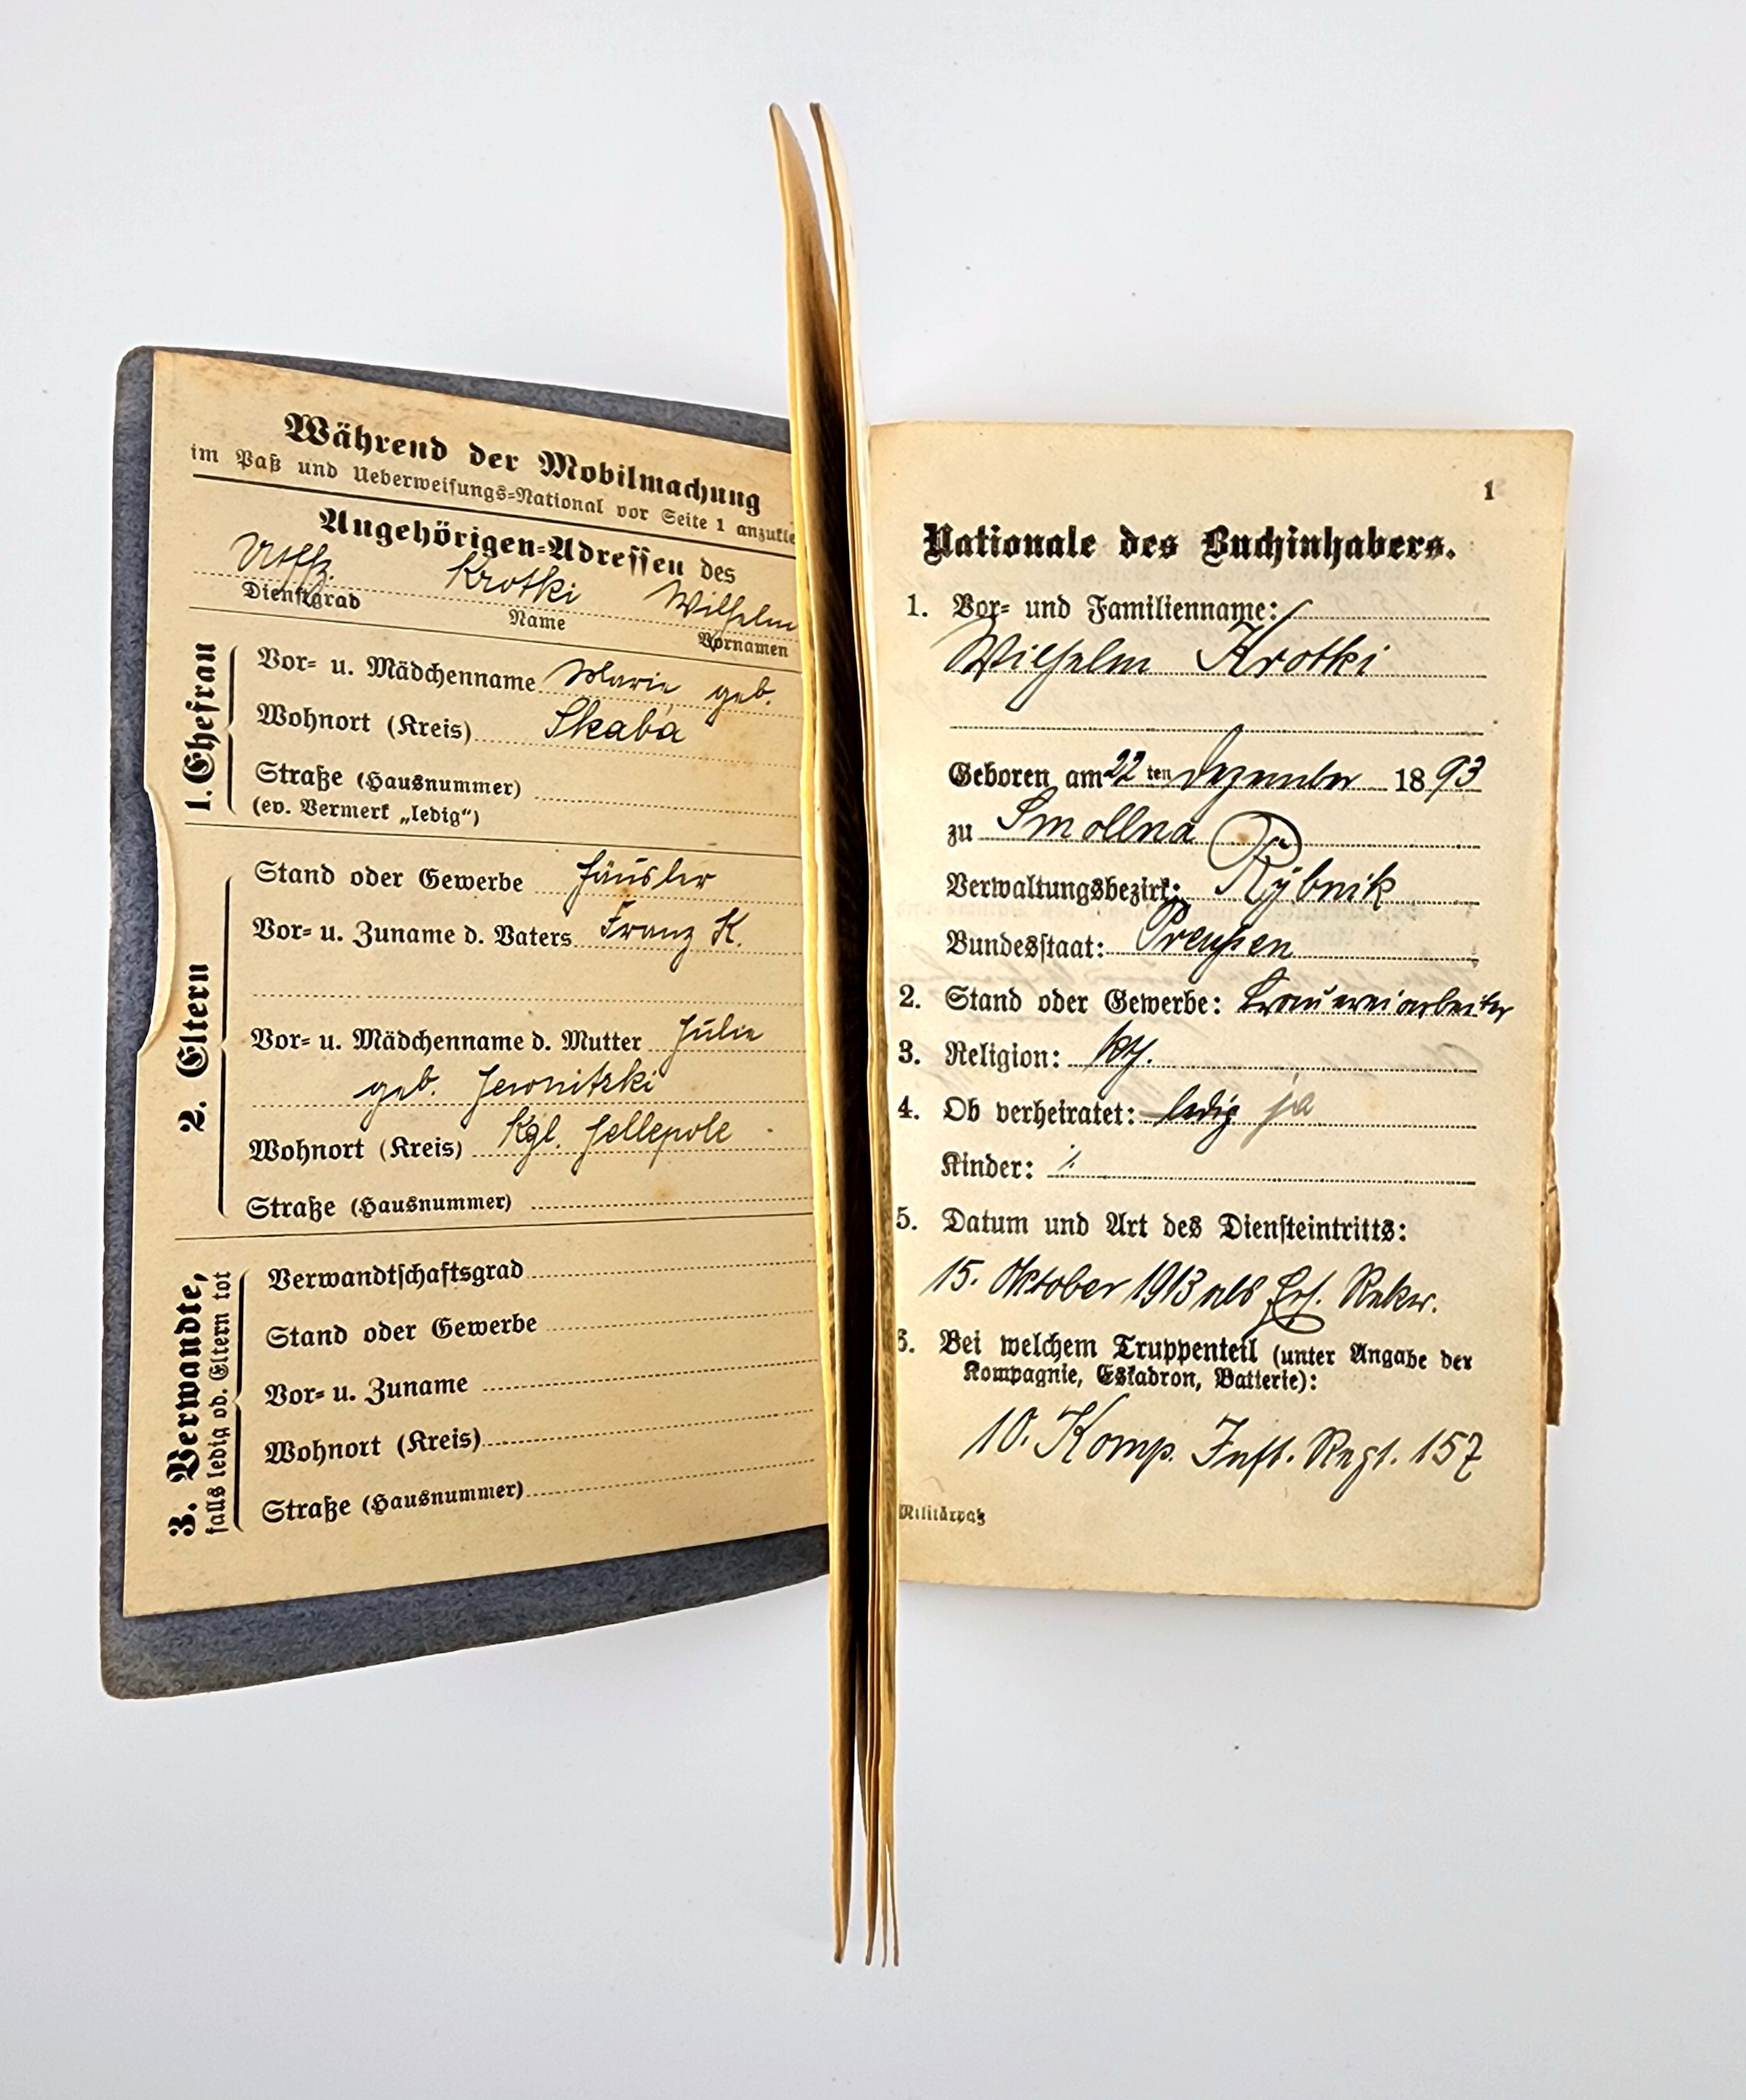 Während der Mobilmachung
im Paß und Ueberweisungs=National vor Seite 1 anzukle
Angehörigen=Adressen des
Utffz. Krotki Wilhelm
Dienstgrad Name Vornamen
1. Ehefrau
Vor= u. Mädchenname Marie geb.
Wohnort (Kreis) Skaba
Straße (Hausnummer)
(ev. Vermerk „ledig“)
2. Eltern
Stand oder Gewerbe Häusler
Vor= u. Zuname d. Vaters Franz K.
Vor= u. Mädchenname d. Mutter Julie
geb.
Wohnort (Kreis) Kgl.
Straße (Hausnummer)
3. Verwandte,
falls ledig od. Eltern tot
Verwandtschaftsgrad
Stand oder Gewerbe
Vor= u. Zuname
Wohnort (Kreis)
Straße (Hausnummer)
1
Nationale des Buchinhabers.
1. Vor= und Familienname:
Wilhelm Krotki
Geboren am 22 ten Dezember 1893
zu Smollna
Verwaltungsbezirk: Rybnik
Bundesstaat: Preußen
2. Stand oder Gewerbe: Brauereiarbeiter
3. Religion: kth.
4. Ob verheiratet: ledig ja
Kinder: ⁒
5. Datum und Art des Diensteintritts:
15. Oktober 1913 als Ers. Rekr.
6. Bei welchem Truppenteil (unter Angabe der
Kompagnie, Eskadron, Batterie):
10. Komp. Inft. Regt. 157
Militärpaß